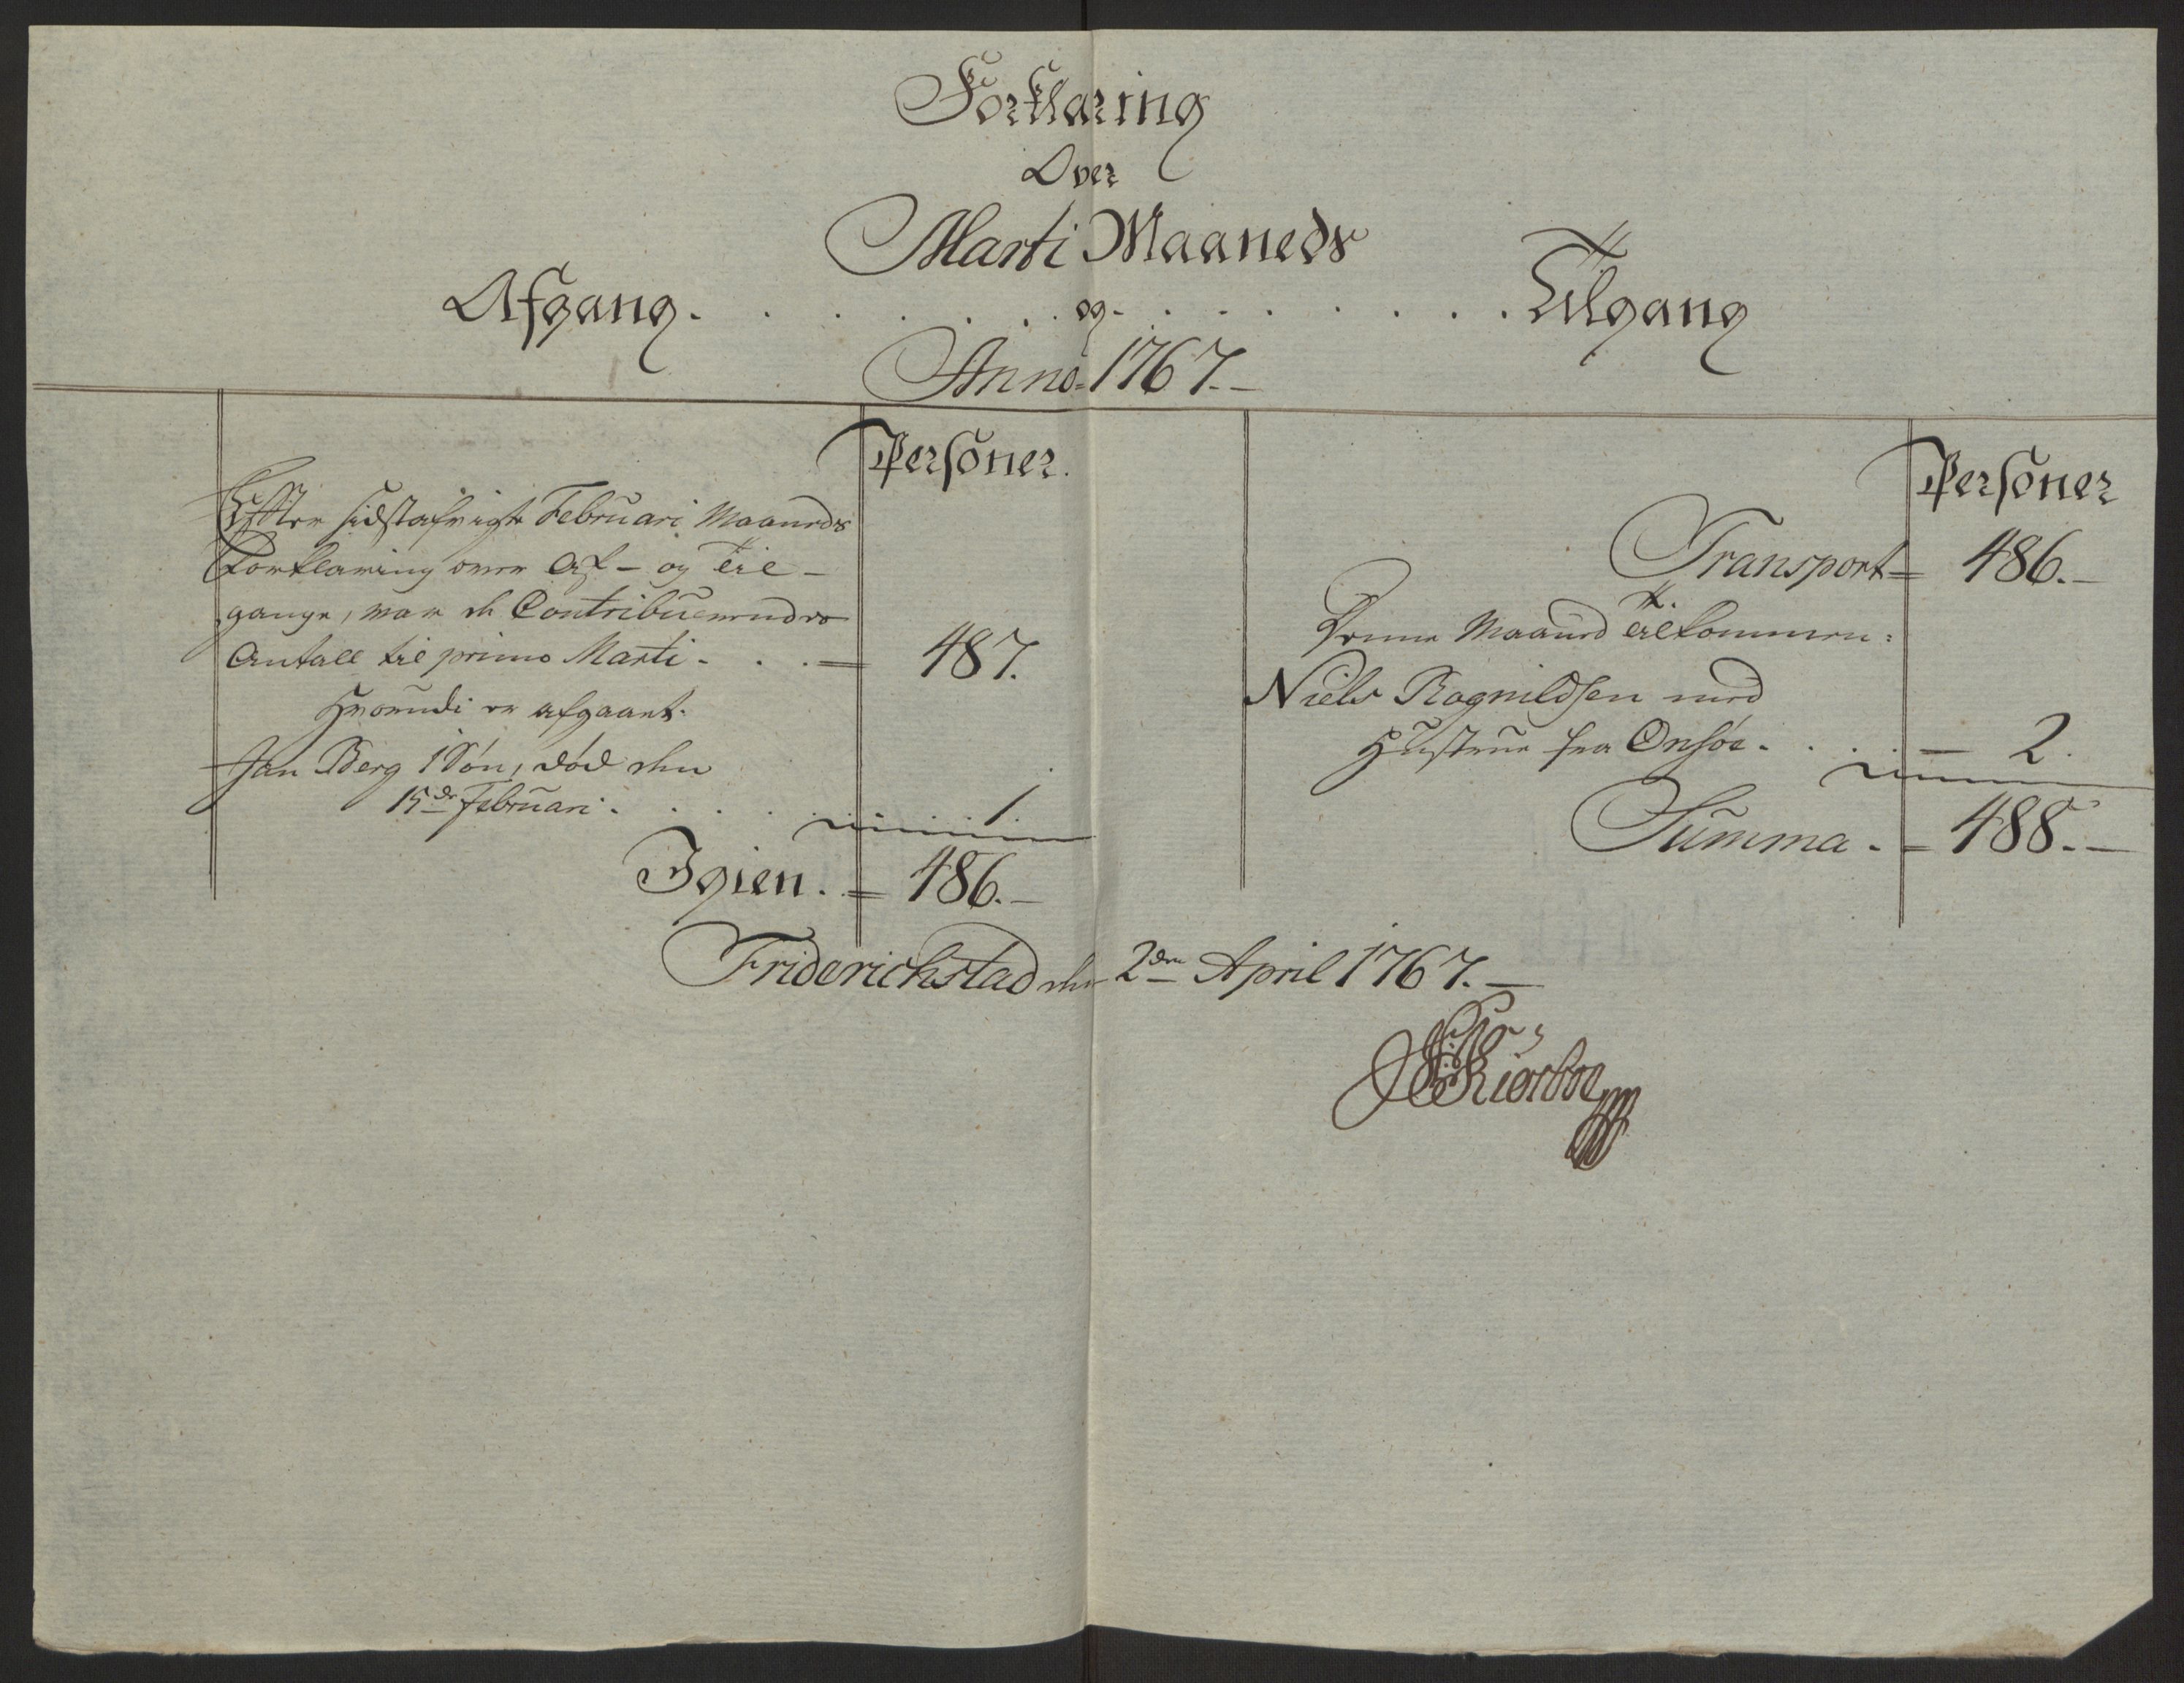 Forklaring
Over
Marti Maaneds
Afgang. . . . . . og. . . . . . . Tilgang
Anno 1767.
Personer.
Efter sidstafvigte Februari Maaneds
Forklaring over Af- og Til-
gange, var de Contribuerendes
Antall til primo Marti . . . = 487.
Hvorudi er afgaaet.
Jan Berg 1 Søn, død den
15de Februari . . . . . 1.
Igien. = 486.
Personer
Transport = 486.
Denne Maaned tilkommen:
Niels Rognildsen med
Hustrue fra Onsøe . . . . 2.
Summa. = 488.
Friderichstad den 2den April 1767.
Kiørboe